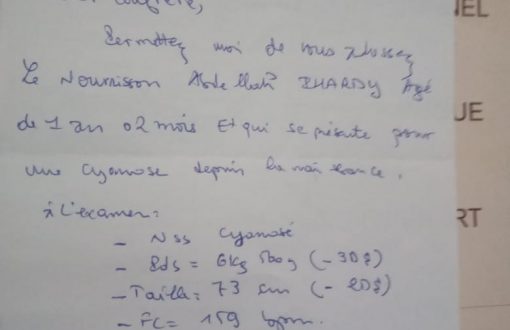 confrère,
NEL
Permettez moi de vous adresser
Le Nourrisson Abdellah Agé
QUE
de 1 an 02 mois Et qui se présente pour
une cyanose depuis la naissance.
à L'examen:
RT
- Nss cyanosé
- Pds = 6kg 500g (-3DS)
- Taille = 73 cm (-2DS)
- FC = 159 bpm.